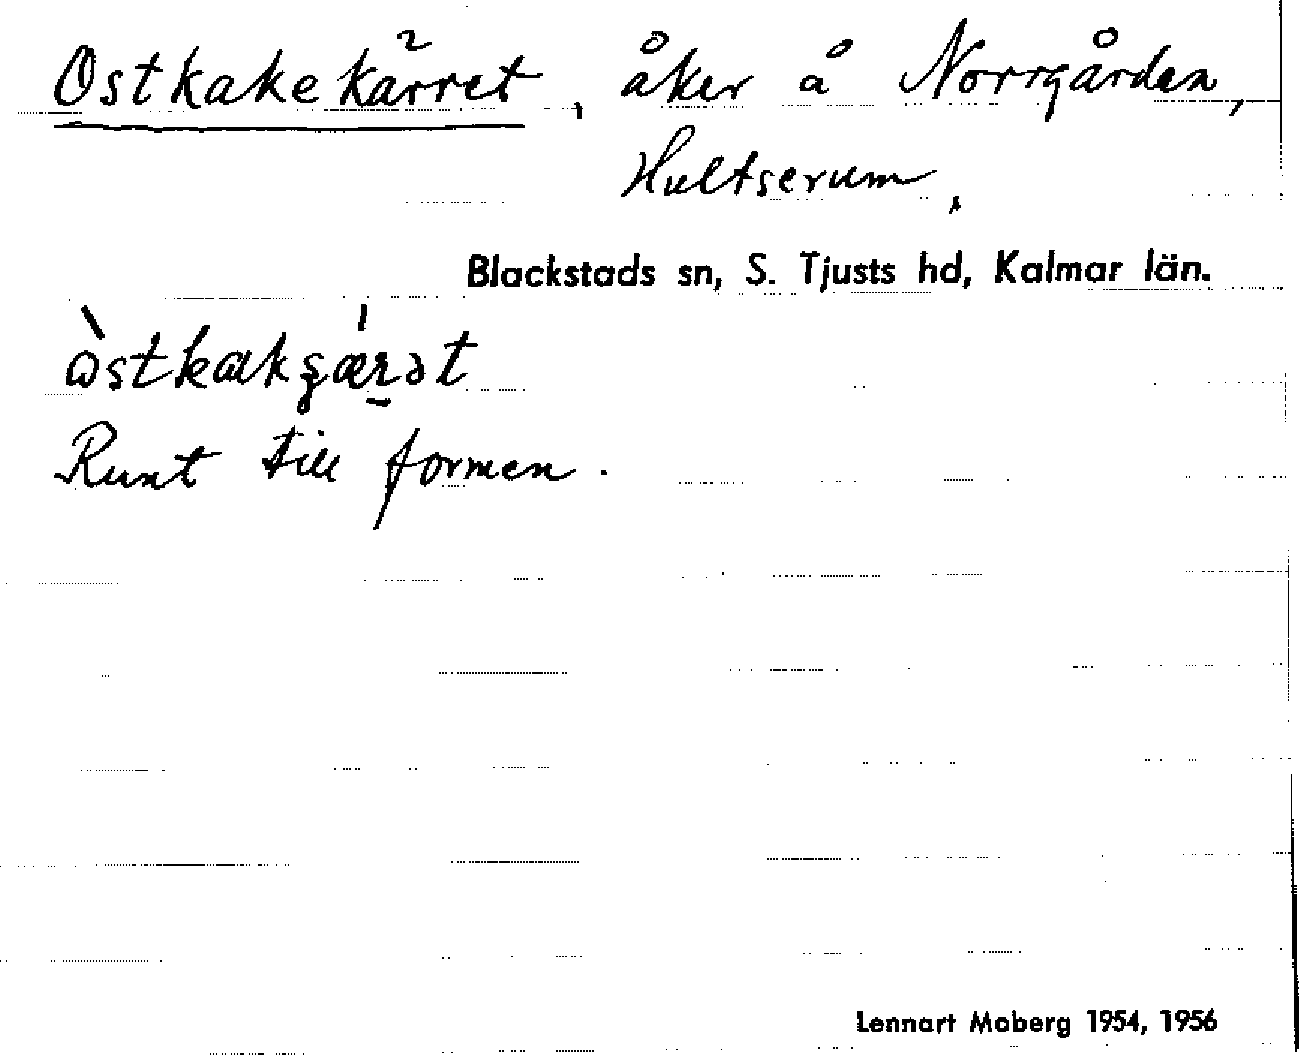 Ostkakekärret, åker å Norrgården,
Hultserum,
Blackstads sn, S. Tjusts hd, Kalmar län.
Runt till formen.
Lennart Moberg 1954, 1956